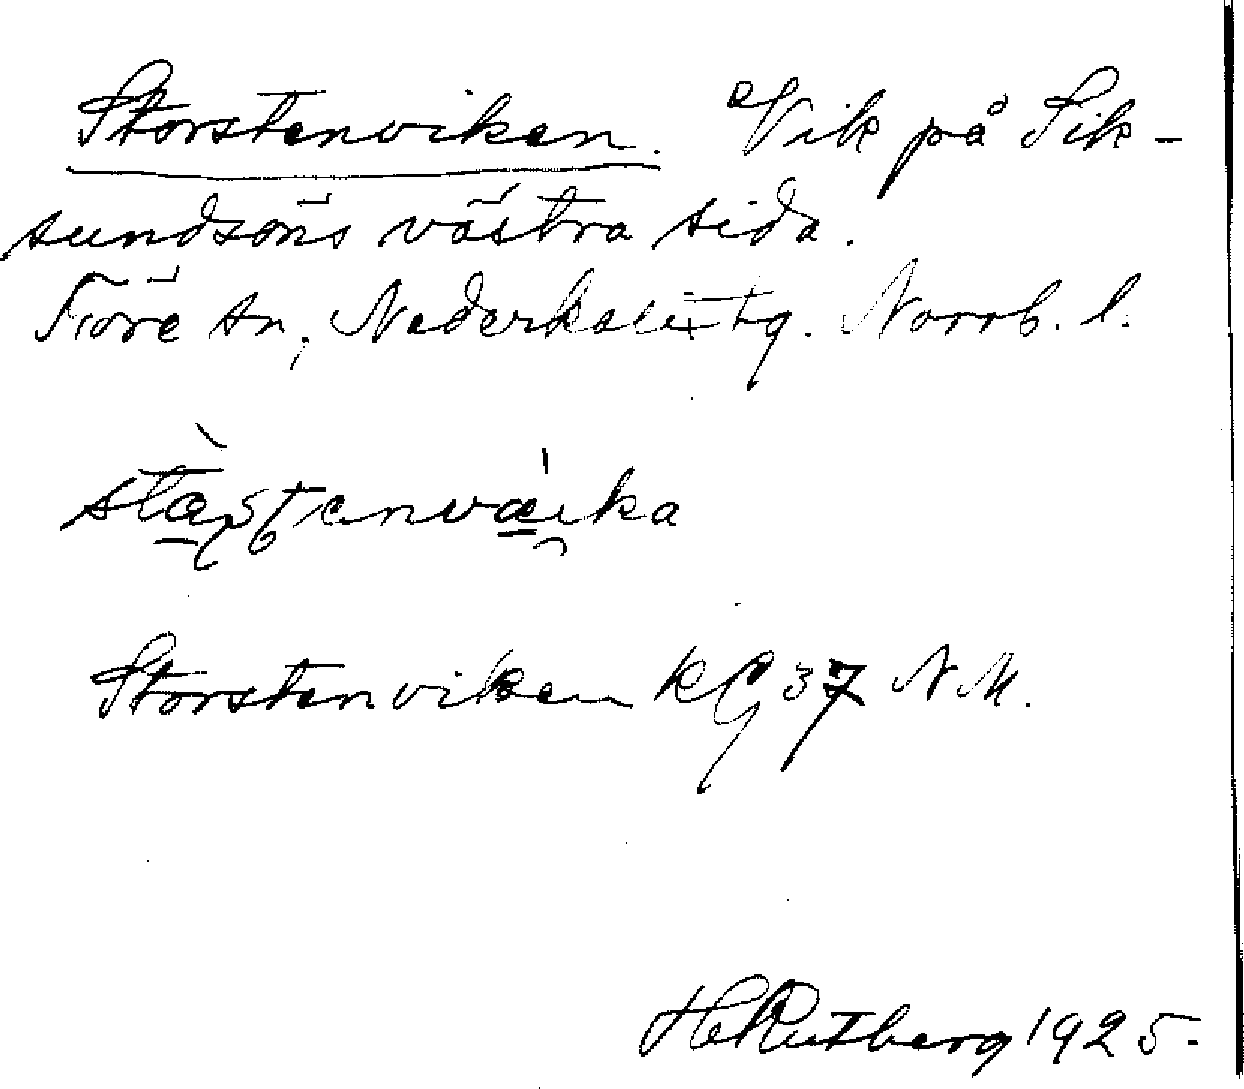 Storstenviken. Vik på Sik-
sundsöns västra sida.
Töre sn, Nederkalix tg. Norrb. l.
Storstenviken KG 37 N M.
H Rutberg 1925.